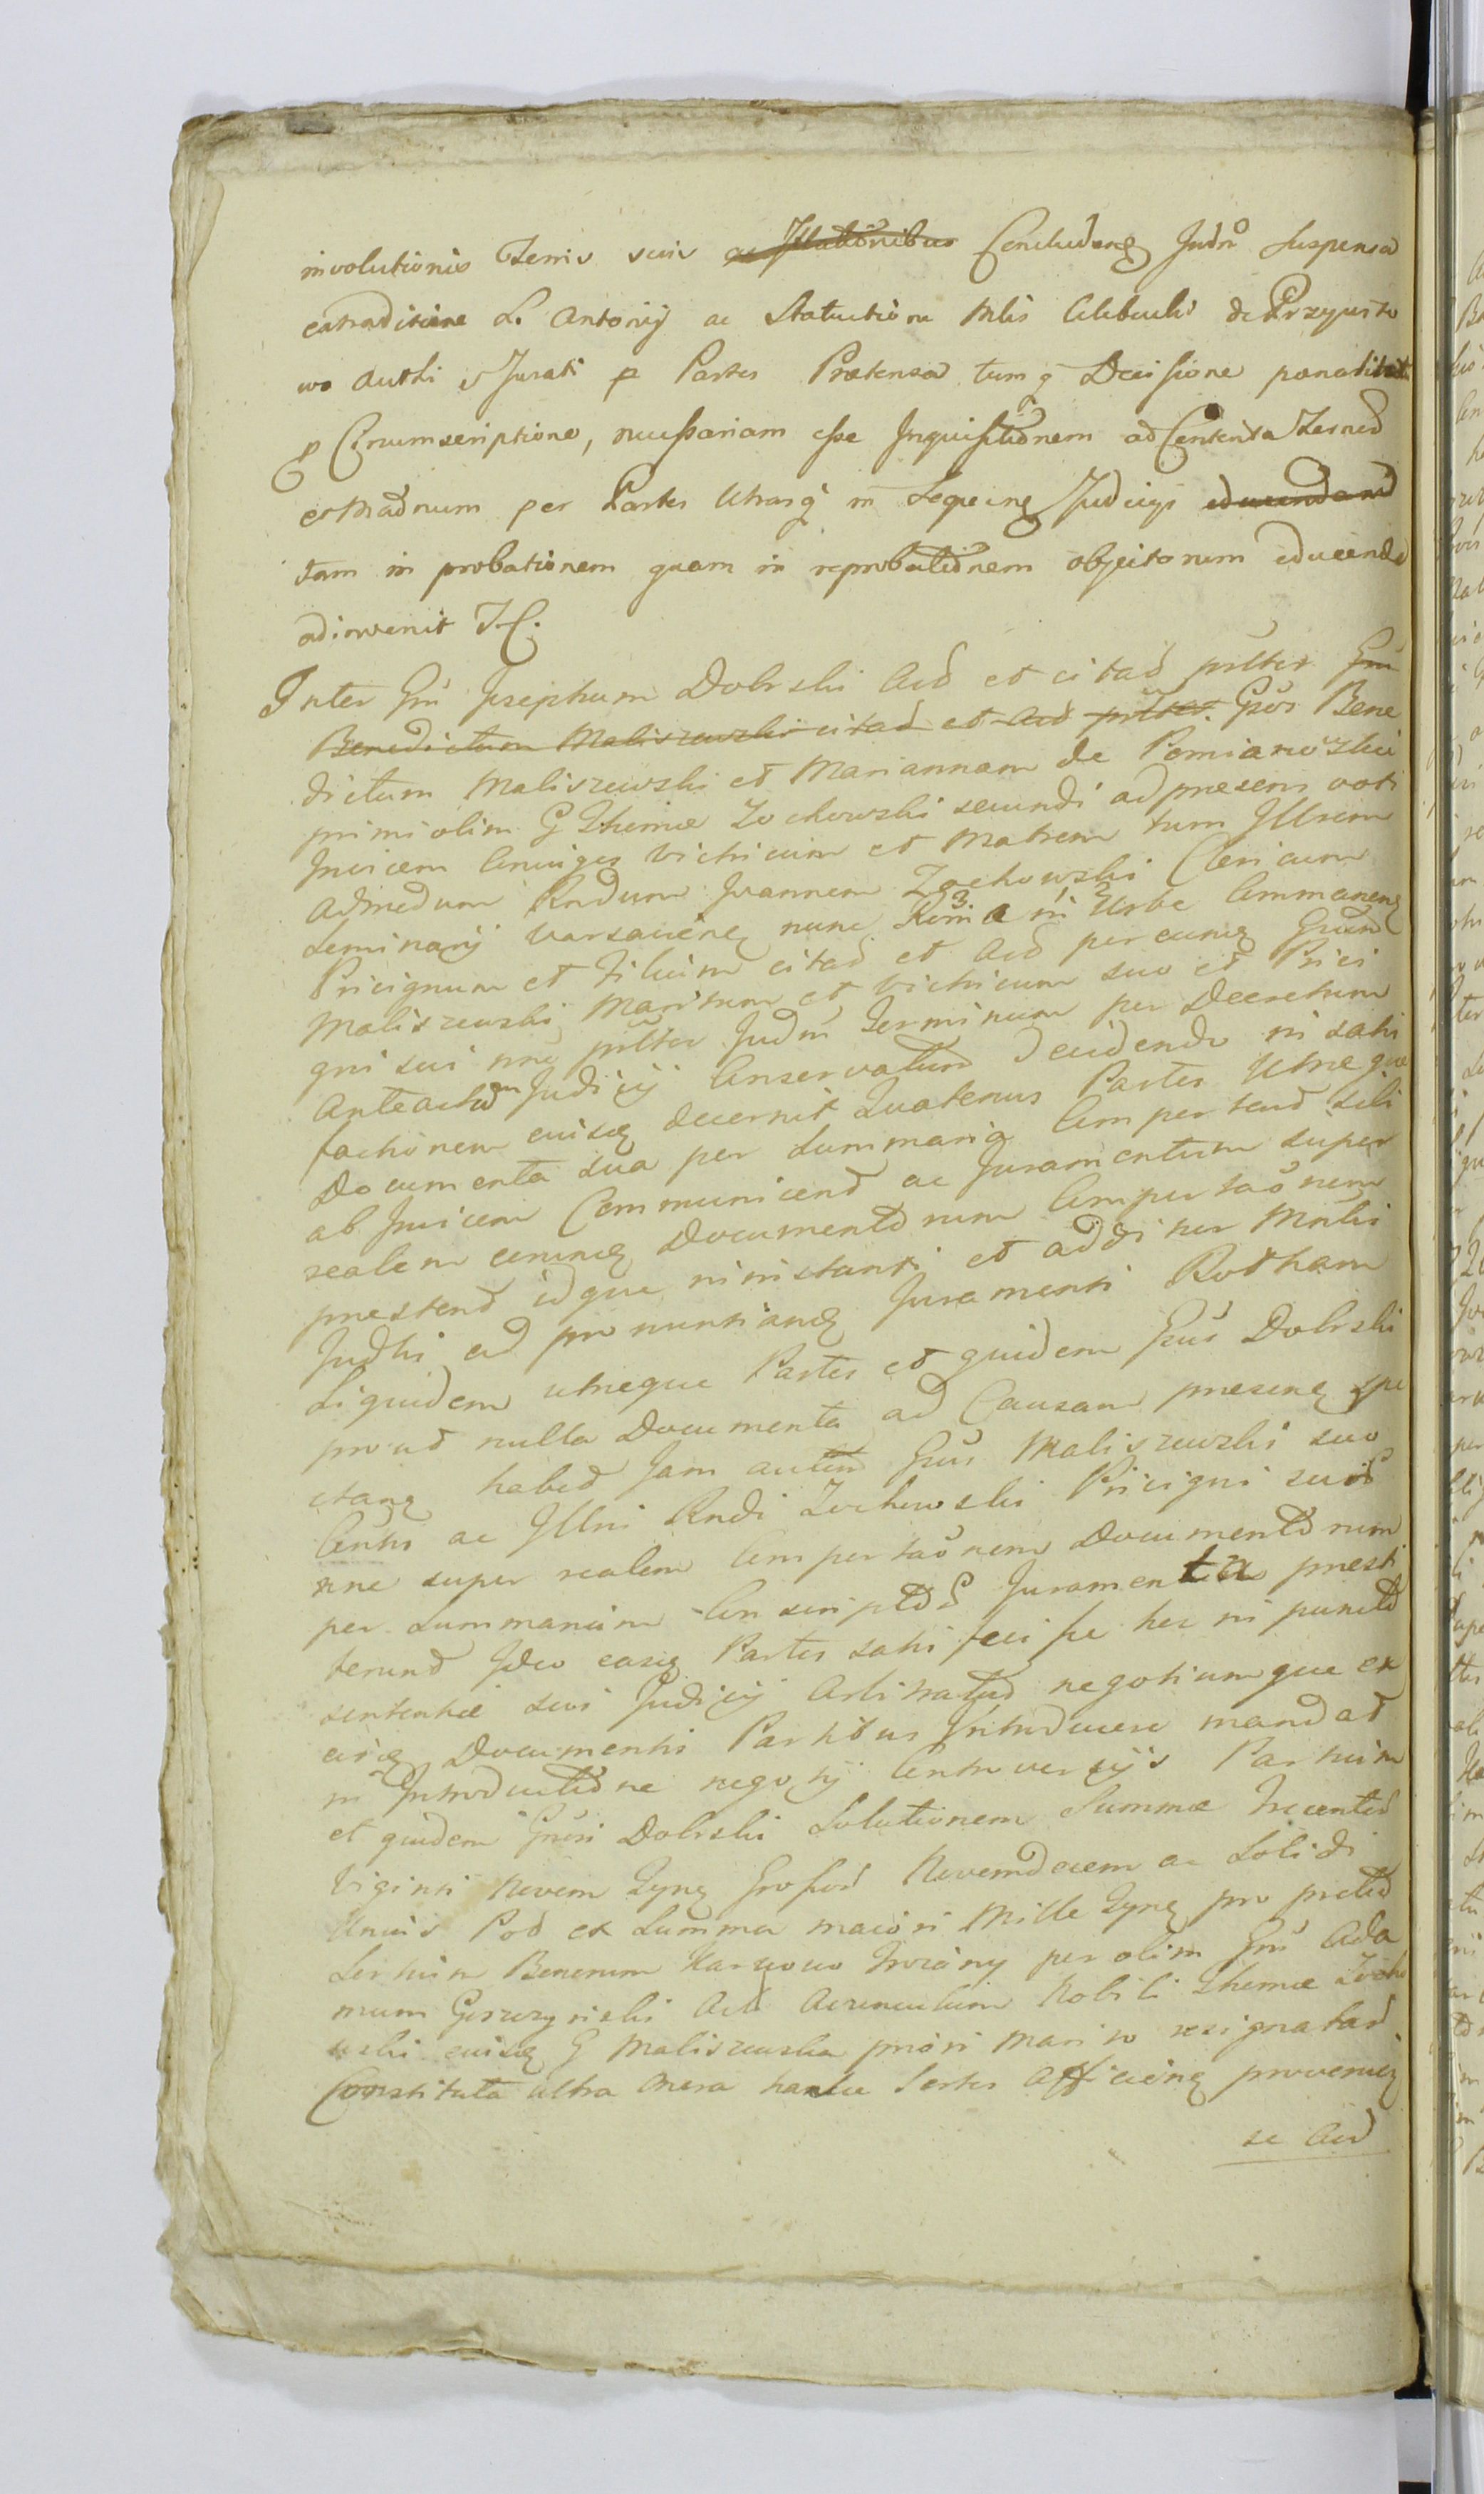 involutionis Termis suis ac Illationibus Concluden Judm Suspensa
extraditione L. Antonij ac Statuitione Nlis Celebuchi de Przypusto
wo Authi & Jurati p Partes Prætensa tumq Decisione pœnalitat
p Circumscriptione, necessariam esse Inquisitionem ad Contenta Termed
extrađnum per Partes Utrasq in Sequeng Judicijs educendand
tam in probationem quam in reprobationem objectorum educenda
adinvenit J.C.
Inter Gm Josephum Dobrski Acđ et citađ prlter Gm
Benedictum Maliszewski citađ et Acđ prlter Gsos Bene
dictum Maliszewski et Mariannam de Pomianowskie
primi olim G Thomæ Zochowski secundi ad præsens voti
Invicem Coniuges Vitricum et Matrem tum Illrem
Admodum Rndum Joannem Zochowski Clericum
Seminarij Varsaviens nunc Romæ in Urbe Commanens
Privignum et Filium citađ et Acđ per eumq Gsum
Maliszewski Maritum et Vitricum suo et Privi
gni sui nne prlter Judm Terminum per Decretum
Anteactum Judicij Conservatum Decidendo in satis
factionem eiusq decernit Quatenus Partes Utræque
Documenta sua per Summaria Comportend sibi
ab Invicem Communicend ac Juramentum super
realem eorumq Documentorum Comportaonem
prestend idque in instanti et addi ter Mnlri
Judtti ad pronuntiandg Juramenti Rotham
Siquidem utræque Partes et quidem Gsus Dobrski
prout nulla Documenta ad Causam presenq spe
ctang habeđ Jam autem Gsus Maliszewski suo
Contis ac Illris Rndi Zochowski Privigni sui
nne super realem Comportaonem Documentorum
per Summarium Conscriptos Juramenta presti
terunđ Ideo easq Partes satis fecisse hec in puncto
sententiæ sui Judicij Arbitratus negotiumque ex
eisq Documentis Partibus Introducere mandat
in Introductione negotij Controversijs Partium
et quidem Gnosi Dobrski Solutionem Summæ Trecentor
Viginti Novem Zynq Grossor Novemdecem ac Solidi
Unius Pod ex Summa maiori Mille Zynq pro pretio
Sortium Bonorum Karwowo Trojany per olim Gm Ada
mum Gorczynski Acđ Avunculum Nobili Thomæ Zocho
wski eiusq G Maliszewska priori Marito resignatar
Constituta ultra Onera hasce Sortes Afficieng proveniez
se Acđ